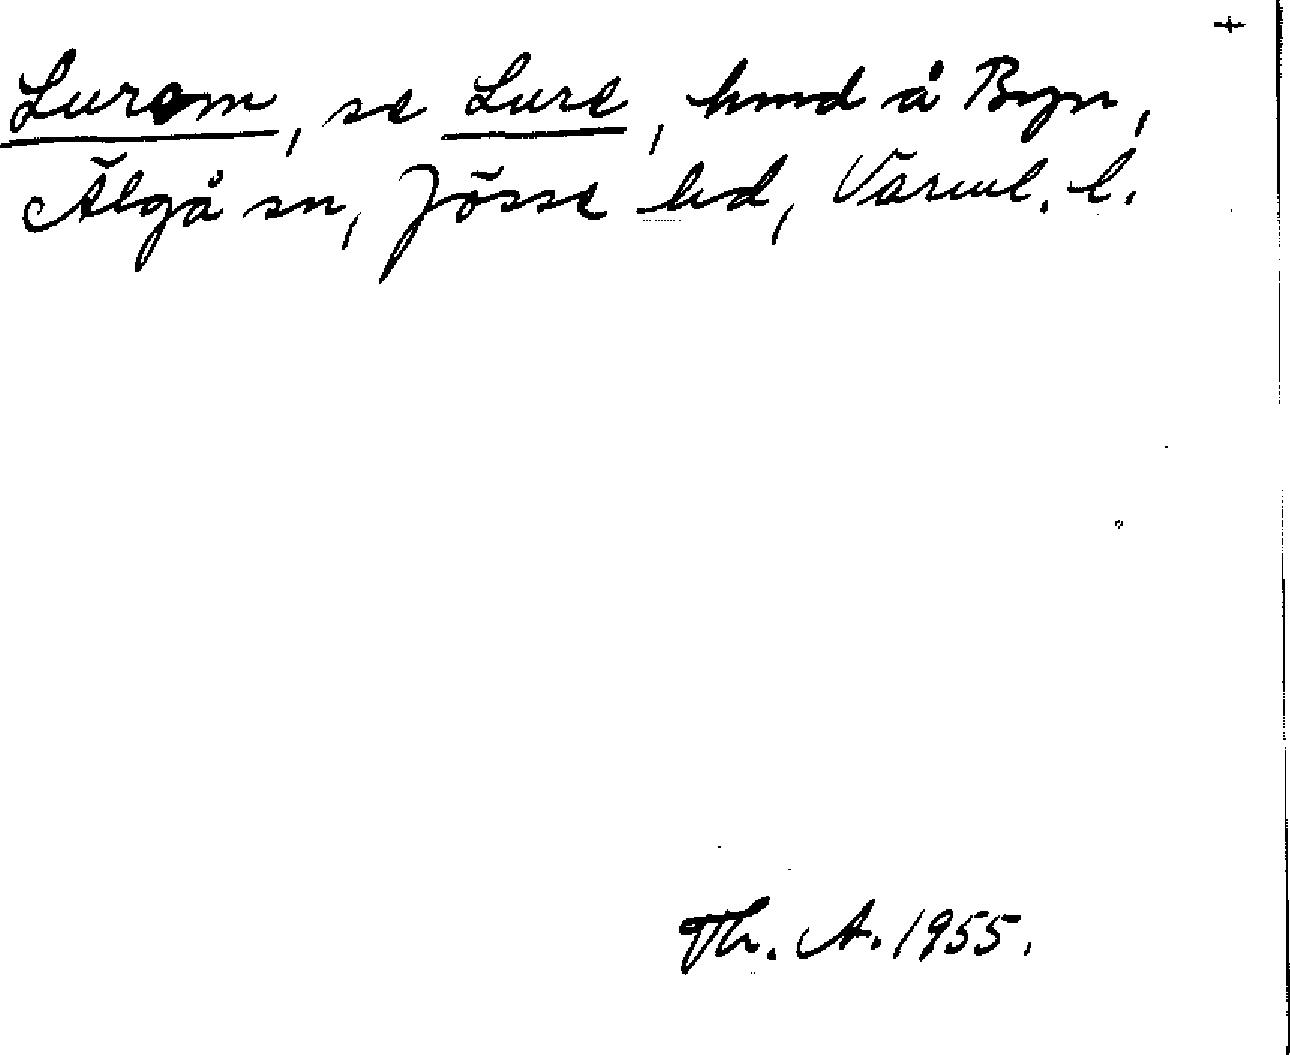 Lurom, se Lure, hmd å Byn,
Älgå sn, Jösse hd, Värml. l.
Th. A. 1955.